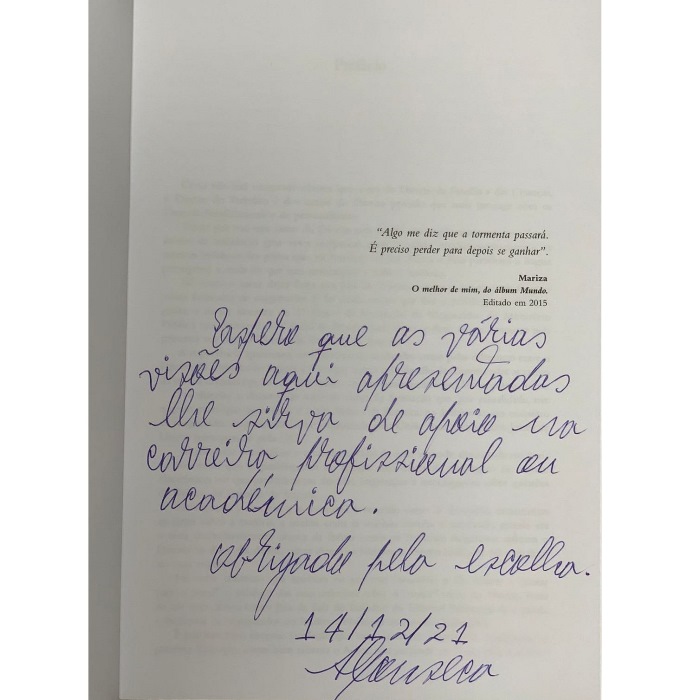 “Algo me diz que a tormenta passará.
É preciso perder para depois se ganhar”.
Mariza
O melhor de mim, do álbum Mundo.
Editado em 2015
Espero que as várias
visões aqui apresentadas
lhe sirva de apoio na
carreira profissional ou
académica.
Obrigada pela escolha.
14/12/21
AFonseca